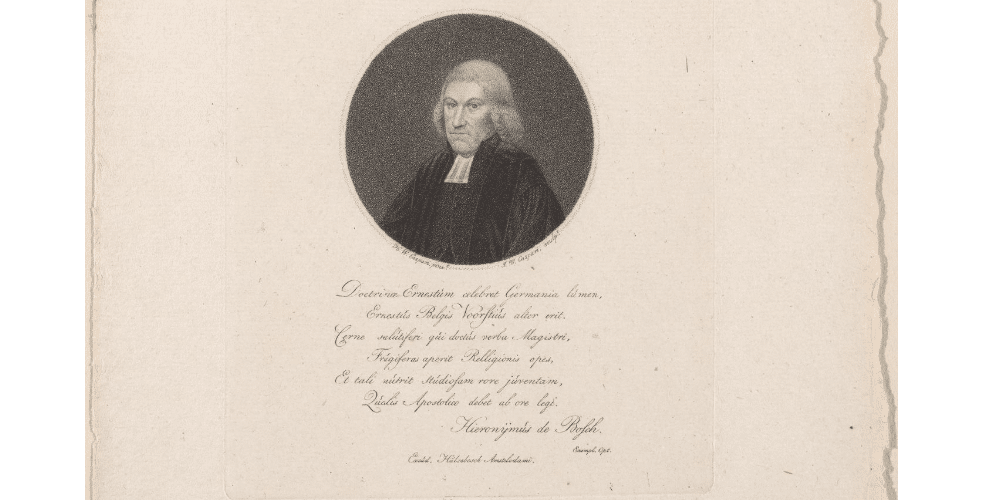 W. Caspari, pinx.t
J. W. Caspari, sculpsit
Doctrinæ Ernestúm celebret Germania lúmen,
Ernestús Belgis Voorstiús alter erit.
Cerne salútiferi qúi doctús verba Magistri,
Frúgiferas aperit Relligionis opes,
Et tali nútrit stúdiosam rore júventam,
Qúalis Apostolico debet ab ore legi.
Hieronÿmús de Bosch.
Excúd. Húlsebosch Amstelodami.